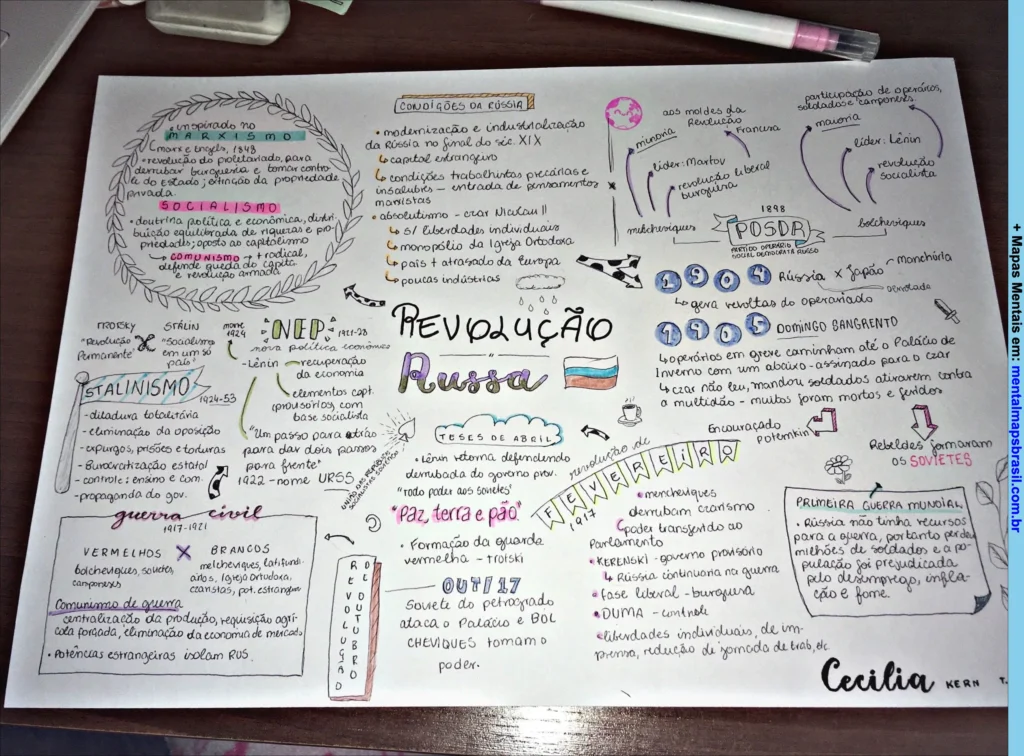 inspirado no
MARXISMO
(marx e Engels, 1848
• revolução do proletariado, para
derrubar burguesia e tomar contro-
le do Estado; extinção da propriedade
privada.
SOCIALISMO
• doutrina política e econômica, distri-
buição equilibrada de riquezas e pro-
priedades; oposto ao capitalismo
COMUNISMO → + radical,
defende queda do capita.
e revolução armada
CONDIÇÕES DA RÚSSIA
• modernização e industrialização
da Rússia no final do séc. XIX
capital estrangeiro
condições trabalhistas precárias e
insalubres - entrada de pensamentos
marxistas
• absolutismo - czar Nicolau II
s/ liberdades individuais
monopólio da Igreja Ortodoxa
país + atrasado da Europa
poucas indústrias
aos moldes da
Revolução
Francesa
minoria
líder: Martov
revolução liberal
burguesa
mencheviques
participação de operários,
soldados e camponeses.
maioria
líder: Lênin
revolução
socialista
bolcheviques
1898
POSDR
PARTIDO OPERÁRIO
SOCIAL DEMOCRATA RUSSO
1904 Rússia x Japão
Manchúria
Derrotada
gera revoltas do operariado
1905 DOMINGO SANGRENTO
operários em greve caminham até o Palácio de
Inverno com um abaixo-assinado para o czar
czar não leu, mandou soldados atirarem contra
a multidão - muitos foram mortos e feridos
Encouraçado
Potemkin
Rebeldes formaram
os SOVIETES
REVOLUÇÃO
Russa
TROTSKY
"Revolução
Permanente"
STÁLIN
"Socialismo
em um só
país"
morre
1924
NEP 1921-28
nova política econômica
- Lênin - recuperação
da economia
elementos capt.
provisórios, com
base socialista
"Um passo para atrás
para dar dois passos
para frente"
1922 - nome URSS
UNIÃO DAS REPÚBLICAS
SOCIALISTAS SOVIÉTICAS
STALINISMO
1924-53
- ditadura totalitária
- eliminação da oposição
- expurgos, prisões e torturas
- Burocratização estatal
- controle: ensino e com.
- propaganda do gov.
guerra civil
1917-1921
VERMELHOS X BRANCOS
bolcheviques, sovietes,
camponeses
mencheviques, latifundi-
ários, Igreja ortodoxa,
czaristas, pot. estrangeiras
Comunismo de guerra
centralização da produção, requisição agrí-
cola forçada, eliminação da economia de mercado
• Potências estrangeiras isolam RUS.
TESES DE ABRIL
• Lênin retorna defendendo
derrubada do governo prov.
"todo poder aos sovietes"
"Paz, terra e pão"
• Formação da guarda
vermelha - Trotski
OUT/17
Soviete do petrogrado
ataca o Palácio e BOL
CHEVIQUES tomam o
poder.
REVOLUÇÃO
DE OUTUBRO
revolução de
FEVEREIRO
1917
• mencheviques
derrubam czarismo
poder transferido ao
Parlamento
• KERENSKI - governo provisório
Rússia continuaria na guerra
• fase liberal - burguesa
• DUMA - controle
• liberdades individuais, de im-
prensa, redução de jornada de trab, etc.
PRIMEIRA GUERRA MUNDIAL
• Rússia não tinha recursos
para a guerra, portanto perdeu
milhões de soldados e a po-
pulação foi prejudicada
pelo desemprego, infla-
ção e fome.
Cecilia KERN T.
+ Mapas Mentais em: mentalmapsbrasil.com.br